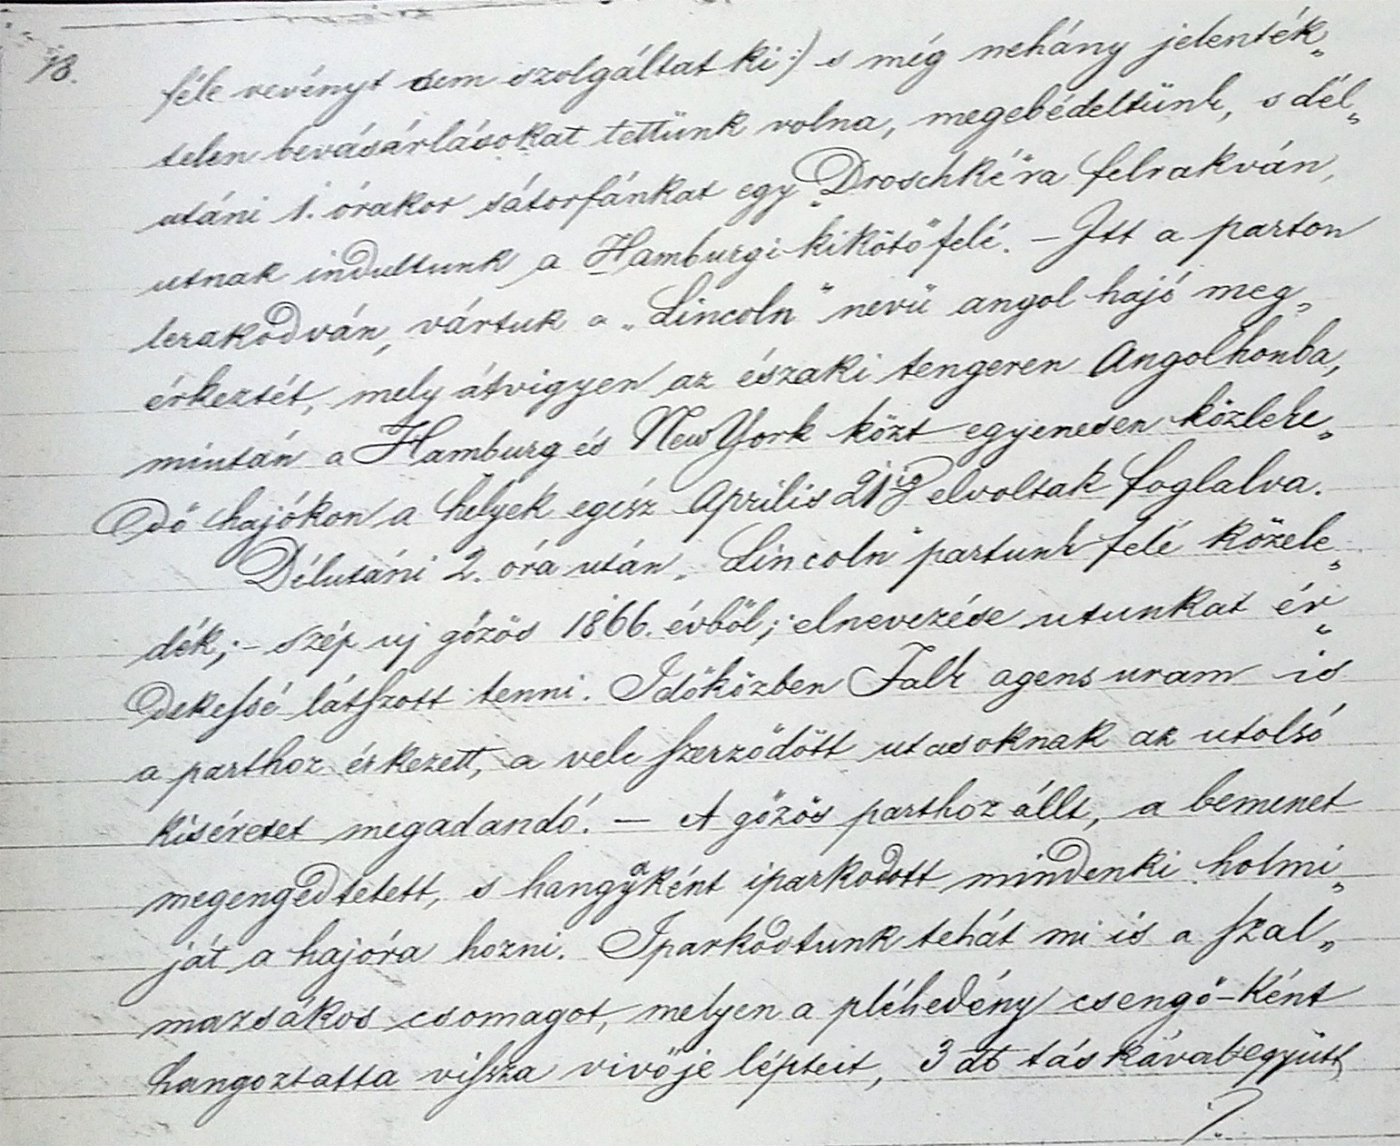 18.
féle vevényt sem szolgáltat ki :) s még nehány jelenték„
telen bevásárlásokat tettünk volna, megebédeltünk, s dél„
utáni 1. órakor sátorfánkat egy „Droschké"ra felrakván,
utnak indultunk a Hamburgi kikötő felé. – Itt a parton
lerakodván, vártuk a „Lincoln" nevü angol hajó meg„
érkeztét, mely átvigyen az északi tengeren Angolhonba,
miután a Hamburg és New York közt egyenesen közleke„
dő hajókon a helyek egész Április 21ig elvoltak foglalva.
Délutáni 2. óra után „Lincoln" partunk felé közele„
dék; – szép uj gőzös 1866. évből; elnevezése utunkat ér„
dekessé látszott tenni. Időközben Falk agens uram is
a parthoz érkezett, a vele szerződött utasoknak az utolsó
kiséretet megadandó. – A gőzös parthoz állt, a bemenet
megengedtetett, s hangyaként iparkodott mindenki holmi„
ját a hajóra hozni. Iparkodtunk tehát mi is a szal„
mazsákos csomagot, melyen a pléhedény csengő-ként
hangoztatta vissza vivője lépteit, 3 db táskával együtt